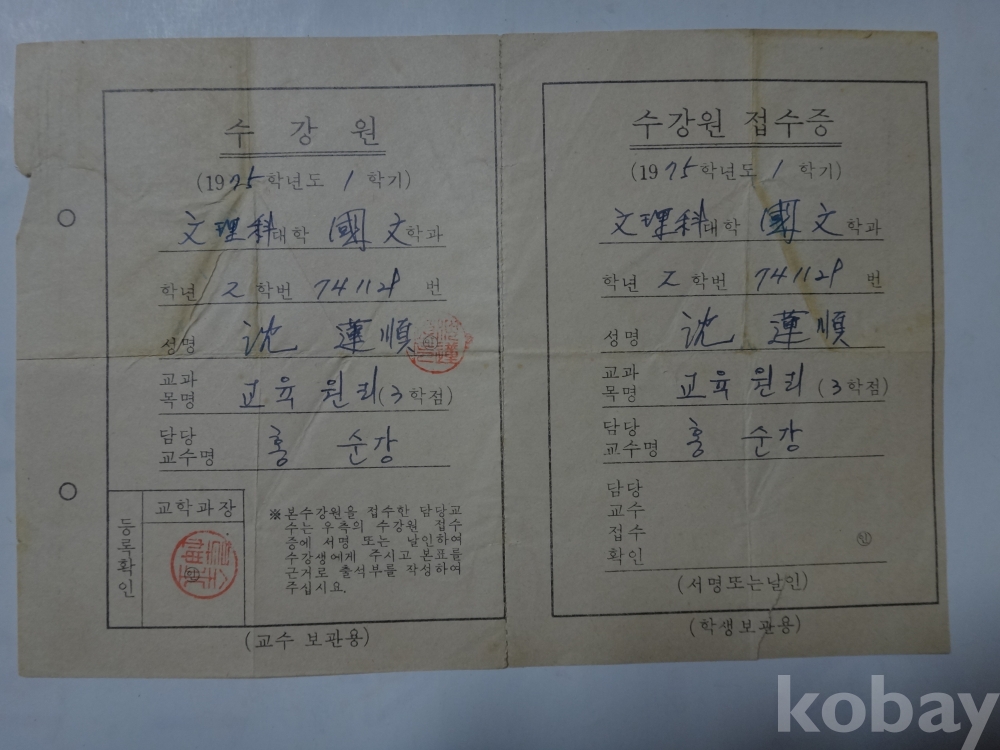 수 강 원
(1975학년도 1 학기)
文理科대학 國文학과
학년 2 학번 741128 번
성명 沈 蓮順
교과
목명 교육 원리(3학점)
담당
교수명 홍 순강
등록확인
교학과장
※본수강원을 접수한 담당교
수는 우측의 수강원 접수
증에 서명 또는 날인하여
수강생에게 주시고 본표를
근거로 출석부를 작성하여
주십시요.
(교수 보관용)
수강원 접수증
(1975학년도 1 학기)
文理科대학 國文학과
학년 2 학번 741128 번
성명 沈 蓮順
교과
목명 교육 원리 (3학점)
담당
교수명 홍 순강
담당
교수
접수
확인
㊞
(서명또는날인)
(학생보관용)
kobay